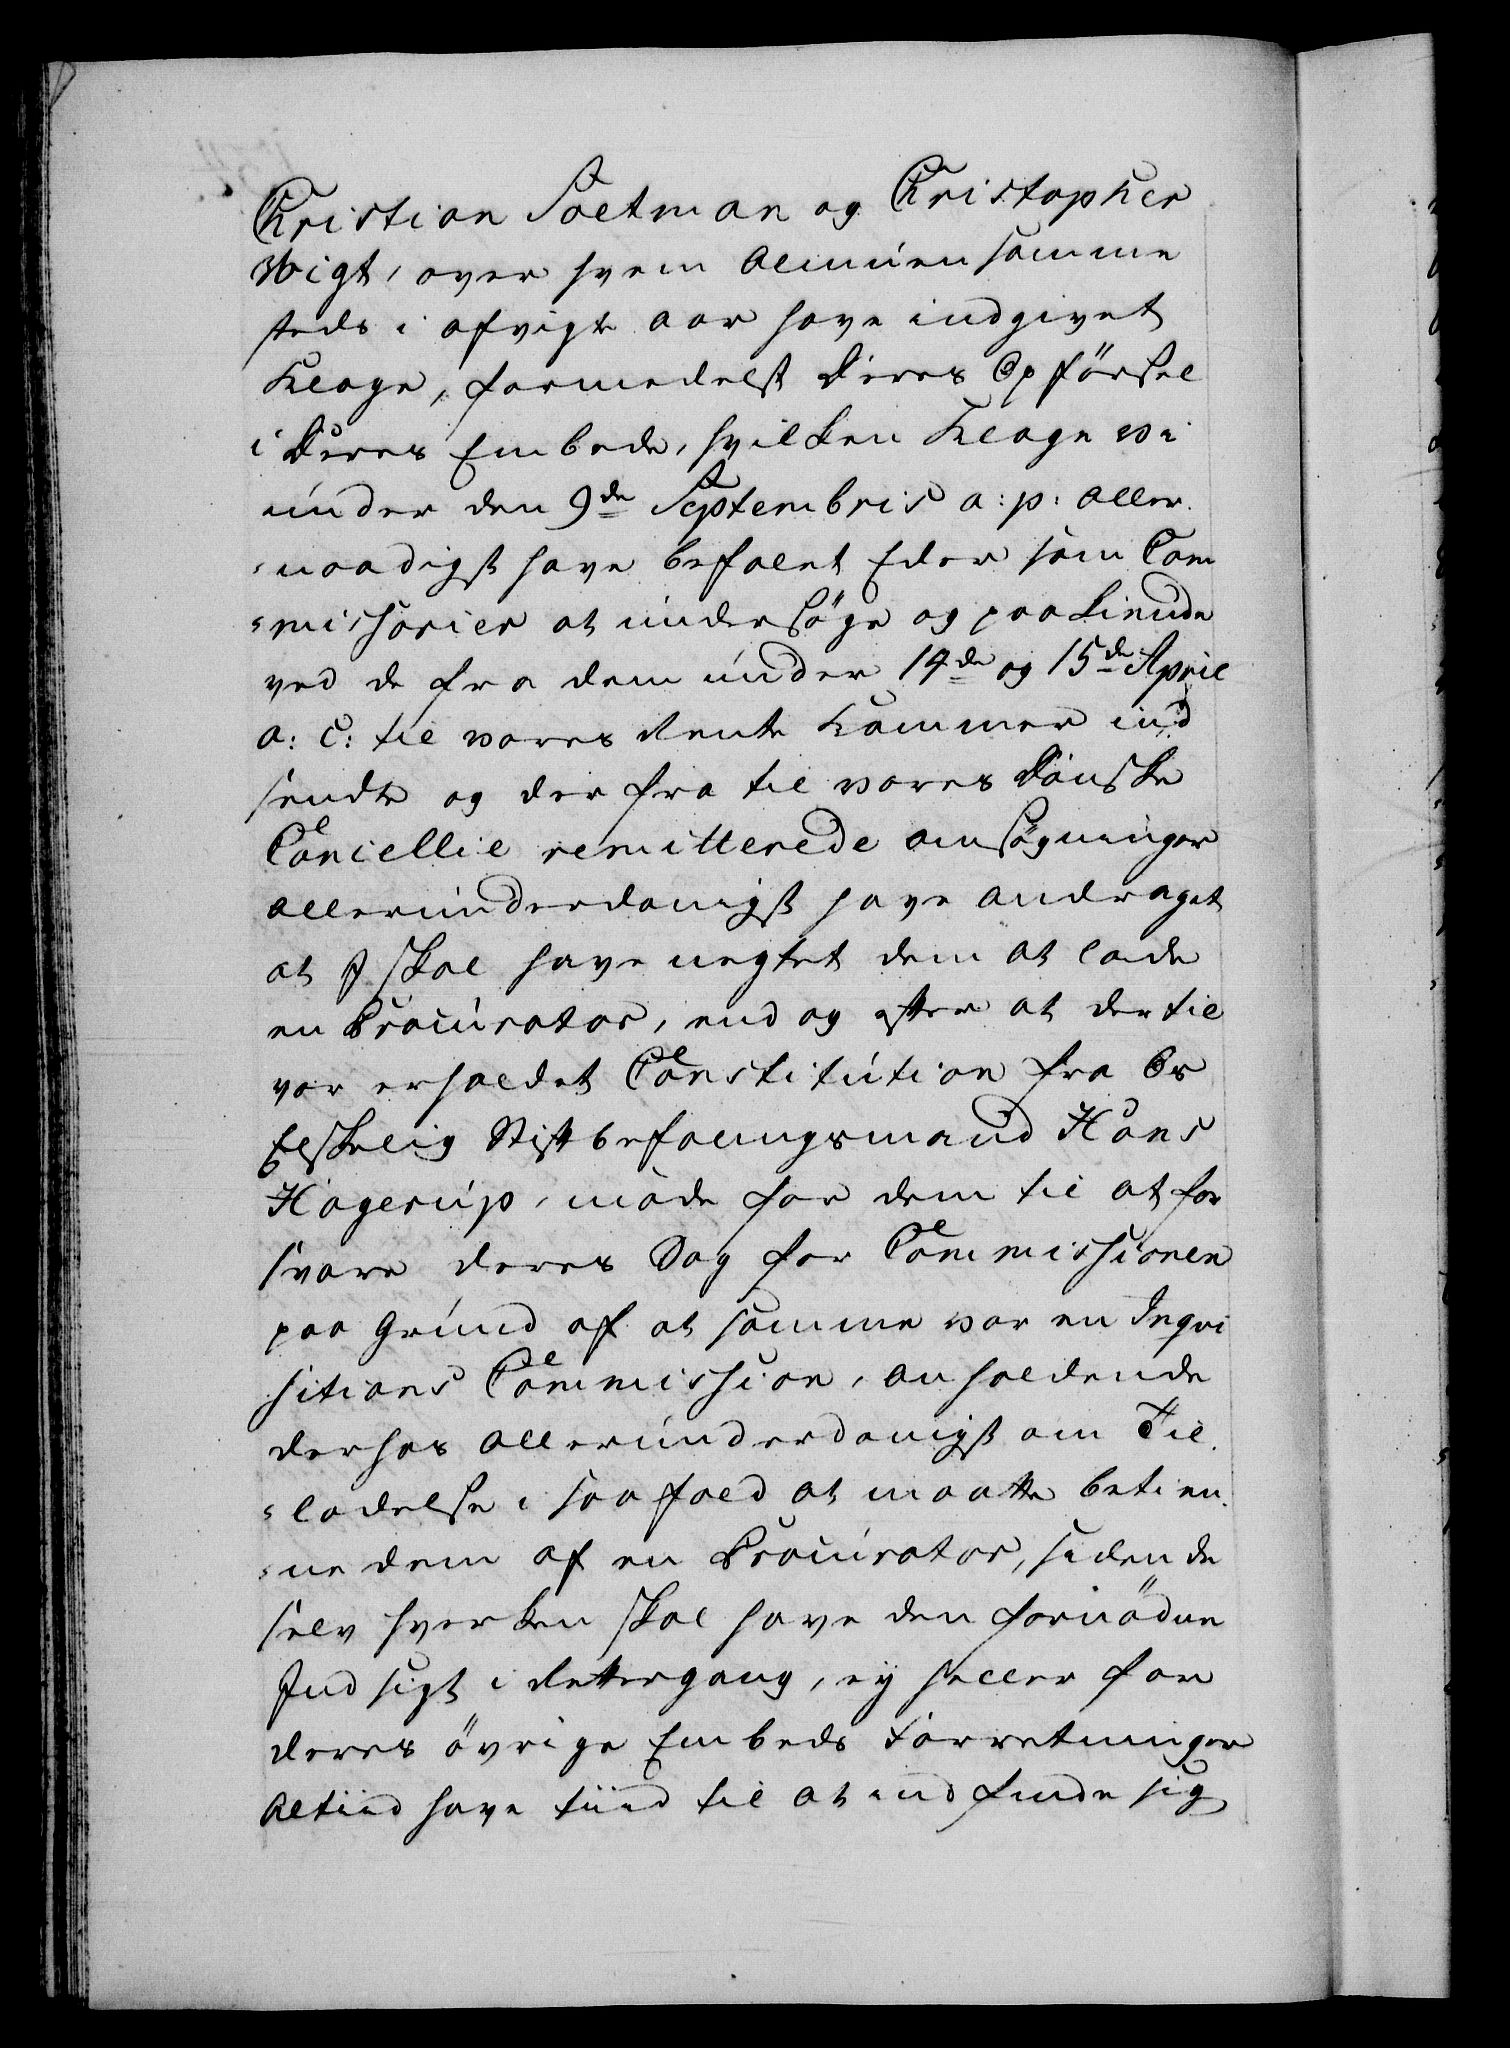 Christian Soetman og Christopher
Voigt, over hvem Almuen samme
steds i afvigte Aar have indgivet
Klage, formedelst deres Opförsel
i deres Embede, hvilken Klage vi
under den 9de Septembris a: p: aller
-naadigst have befalet Eder som Com
-missarier at undersöge og paakiende
ved de fra dem under 14de og 15de April
a: c: til vores Rente Kammer ind
sendte og der fra til vores Danske
Cancellie remitterede ansögninger
allerunderdanigst have andraget
at I skal have negtet dem at lade
en Procurator, end og efter at dertil
var erholdet Constitution fra Os
Elskelig Stiftbefalingsmand Hans
Hagerup, möde for dem til at for
svare deres Sag for Commissionen
paa Grund af at samme var en Inqvi
sitions Commission, anholdende
derhos allerunderdanigst om Til
-ladelse i saa fald at maatte betien
-ne dem af en Procurator, siden de
selv hverken skal have den fornödne
Indsigt i Rettergang, ey heller for
deres övrige Embeds Forretninger
altiid have tiid til at indfinde sig